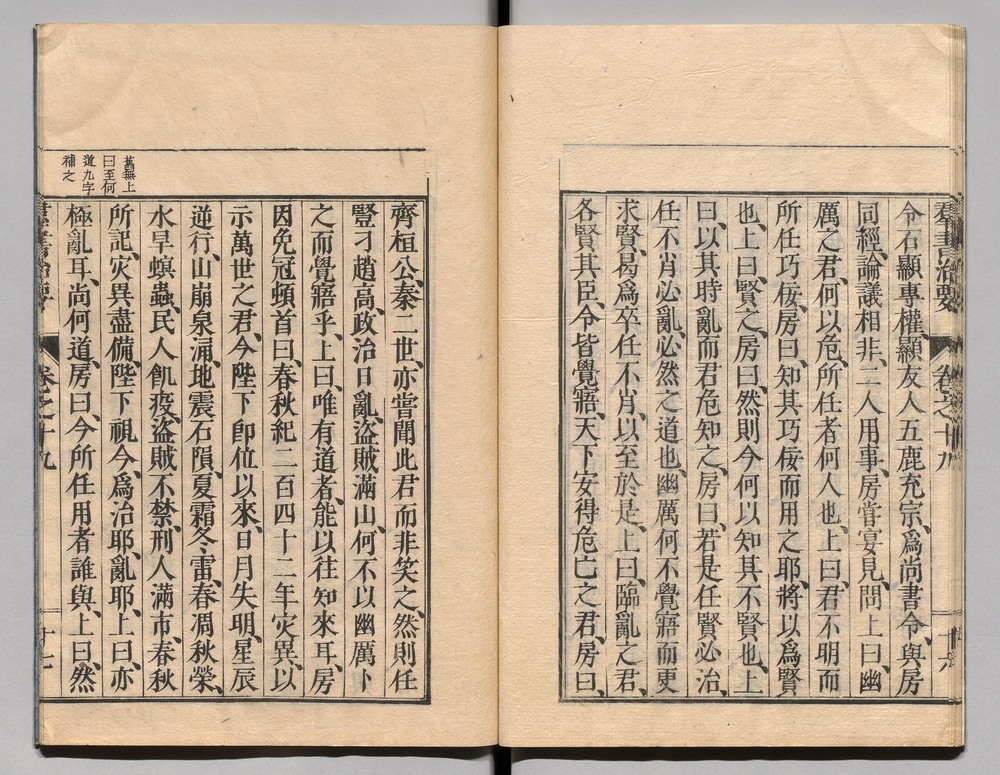 羣書治要 卷之十九 十六
令石顯專權、顯友人五鹿充宗、爲尚書令、與房
同經、論議相非、二人用事、房嘗宴見、問上曰、幽
厲之君、何以危、所任者何人也、上曰、君不明而
所任巧佞、房曰、知其巧佞而用之耶、將以爲賢
也、上曰、賢之、房曰、然則今何以知其不賢也、上
曰、以其時亂而君危知之、房曰、若是任賢必治、
任不肖必亂、必然之道也、幽厲何不覺寤而更
求賢、曷爲卒任不肖、以至於是、上曰、臨亂之君、
各賢其臣、令皆覺寤、天下安得危亡之君、房曰、
舊無上
曰至何
道九字
補之
齊桓公、秦二世、亦嘗聞此君而非笑之、然則任
豎刁趙高、政治日亂、盜賊滿山、何不以幽厲卜
之而覺寤乎、上曰、唯有道者、能以往知來耳、房
因免冠頓首曰、春秋紀二百四十二年災異、以
示萬世之君、今陛下卽位以來、日月失明、星辰
逆行、山崩泉涌、地震石隕、夏霜冬雷、春凋秋榮、
水旱螟蟲、民人飢疫、盜賊不禁、刑人滿市、春秋
所記、災異盡備、陛下視今、爲治耶、亂耶、上曰、亦
極亂耳、尚何道、房曰、今所任用者誰與、上曰、然
羣書治要 卷之十九 十七